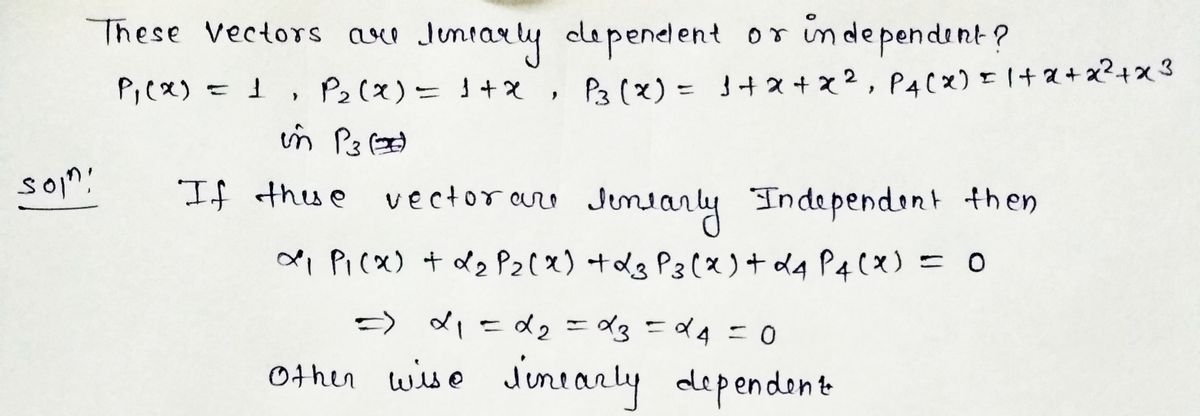 These vectors are linearly dependent or independent?
P₁(x) = 1 , P₂(x) = 1+x , P₃(x) = 1+x+x², P₄(x) = 1+x+x²+x³
in P₃
Solⁿ: If these vector are linearly Independent then
α₁ P₁(x) + α₂ P₂(x) + α₃ P₃(x) + α₄ P₄(x) = 0
⇒ α₁ = α₂ = α₃ = α₄ = 0
Other wise linearly dependent